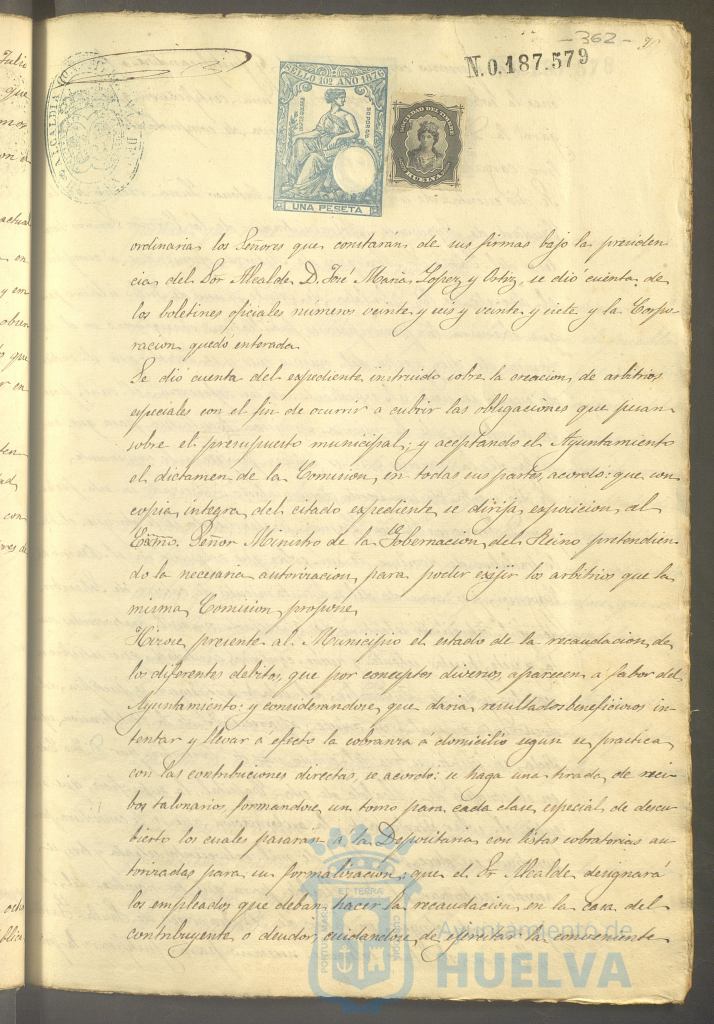 - 362 -
N.0.187.579
SELLO 10º AÑO 187
UNA PESETA
SOCIEDAD DEL TIMBRE
HUELVA
ordinaria los Señores que constarán de sus firmas bajo la presiden
cia del Sor Alcalde D. José Maria Lopez y Ortiz, se dió cuenta de
los boletines oficiales números veinte y seis y veinte y siete y la Corpo
racion quedó enterada
Se dió cuenta del espediente instruido sobre la creacion de arbitrios
especiales con el fin de ocurrir a cubrir las obligaciones que pesan
sobre el presupuesto municipal; y aceptando el Ayuntamiento
el dictamen de la Comision en todas sus partes, acordo: que con
copia integra del citado espediente se dirija esposicion al
Exmo. Señor Ministro de la Gobernacion del Reino pretendien
do la necesaria autorizacion para poder exijir los arbitrios que la
misma Comision propone
Hizose presente al Municipio el estado de la recaudacion de
los diferentes debitos que por conceptos diversos aparecen a fabor del
Ayuntamiento: y considerandose que daria resultados beneficiosos in
tentar y llevar a efecto la cobranza á domicilio segun se practica
con las contribuciones directas, se acordo: se haga una tirada de reci
bos talonarios formandose un tomo para cada clase especial de descu
bierto los cuales pasarán á la Depositaria con listas cobratorias au
torizadas para su formalizacion; que el Sr Alcalde designará
los empleados que deban hacer la recaudacion en la casa del
contribuyente o deudor, cuidandose de ejercitar la conveniente
Ayuntamiento de
HUELVA